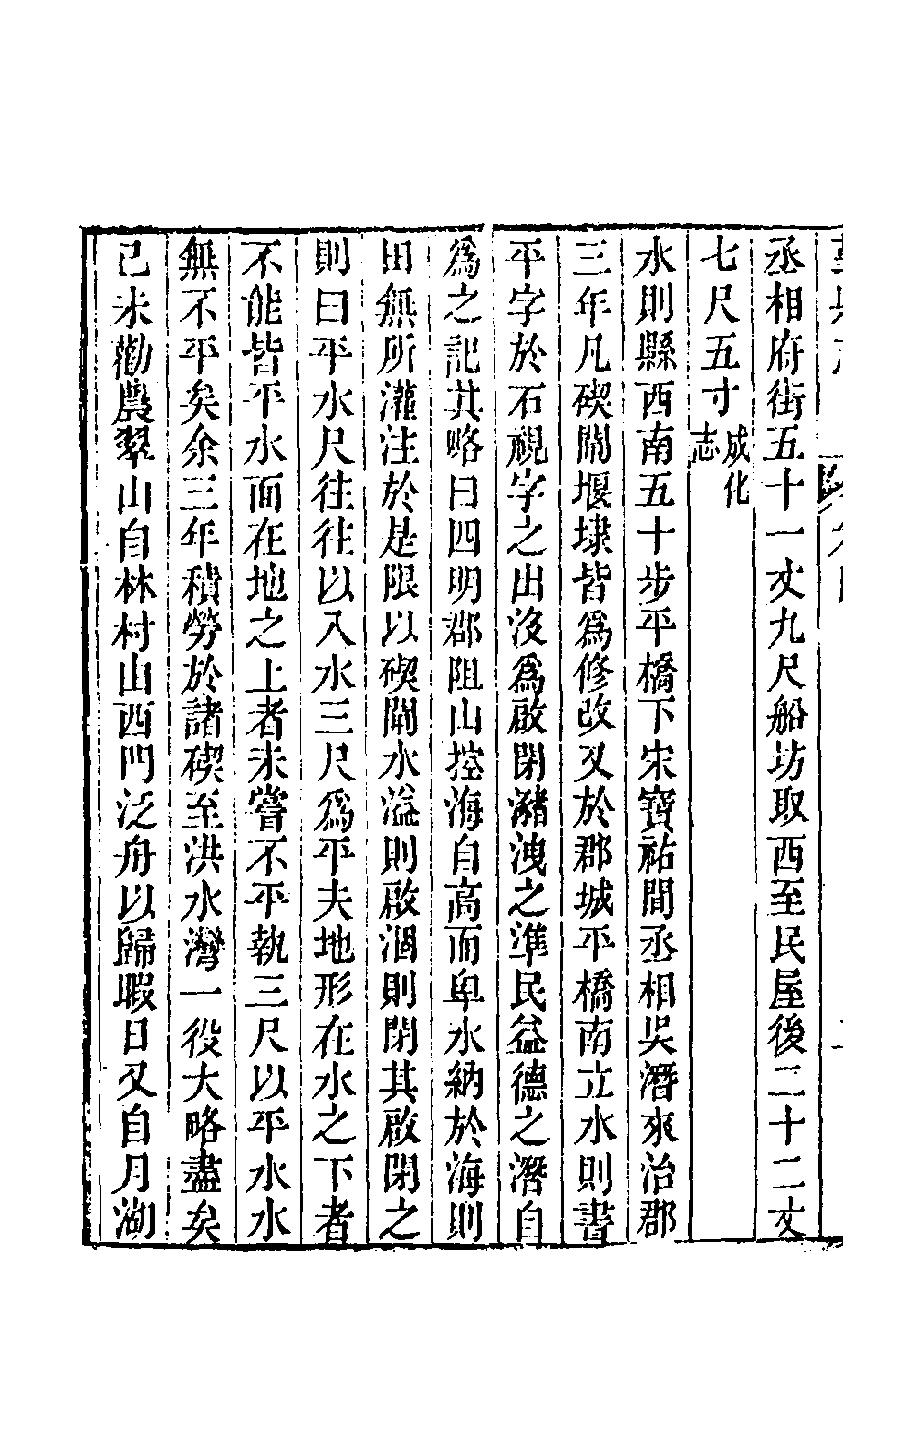 丞相府街五十一丈九尺船坊取西至民屋後二十二丈
七尺五寸成化志
水則縣西南五十步平橋下宋寶祐間丞相吳潛來治郡
三年凡碶閘堰埭皆爲修改又於郡城平橋南立水則書
平字於石視字之出沒爲啟閉瀦洩之準民益德之潛自
爲之記其略曰四明郡阻山控海自高而卑水納於海則
田無所灌注於是限以碶閘水溢則啟涸則閉其啟閉之
則曰平水尺往往以入水三尺爲平夫地形在水之下者
不能皆平水面在地之上者未嘗不平執三尺以平水水
無不平矣余三年積勞於諸碶至洪水灣一役大略盡矣
己未勸農翠山自林村山西門泛舟以歸暇日又自月湖